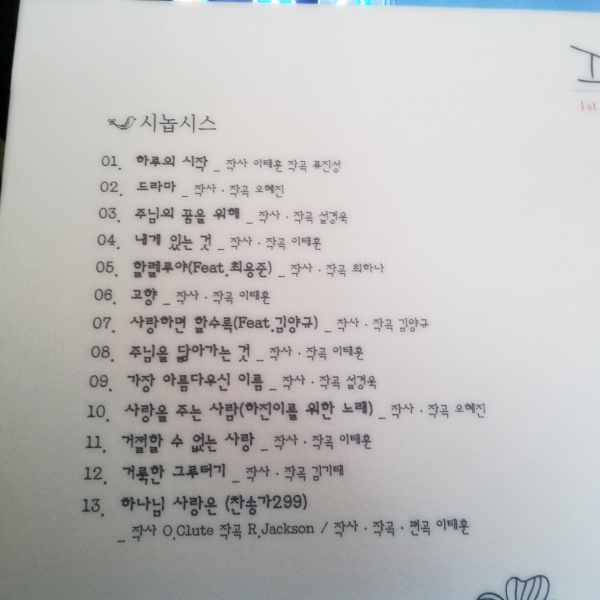 1st
시놉시스
01. 하루의 시작 _ 작사 이태훈 작곡 류진성
02. 드라마 _ 작사 · 작곡 오혜진
03. 주님의 꿈을 위해 _ 작사 · 작곡 설경욱
04. 내게 있는 것 _ 작사 · 작곡 이태훈
05. 할렐루야(Feat.최용준) _ 작사 · 작곡 최하나
06. 고향 _ 작사 · 작곡 이태훈
07. 사랑하면 할수록(Feat.김양규) _ 작사 · 작곡 김양규
08. 주님을 닮아가는 것 _ 작사 · 작곡 이태훈
09. 가장 아름다우신 이름 _ 작사 · 작곡 설경욱
10. 사랑을 주는 사람(하진이를 위한 노래) _ 작사 · 작곡 오혜진
11. 거절할 수 없는 사랑 _ 작사 · 작곡 이태훈
12. 거룩한 그루터기 _ 작사 · 작곡 김기태
13. 하나님 사랑은 (찬송가299)
_ 작사 O.Clute 작곡 R.Jackson / 작사 · 작곡 · 편곡 이태훈